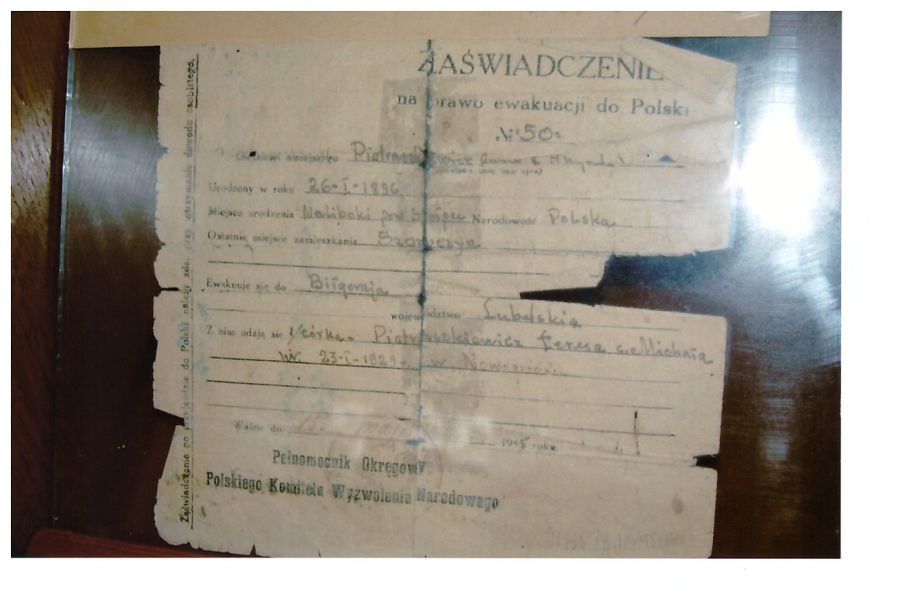 ZAŚWIADCZENIE
na prawo ewakuacji do Polski
№ 50
Okaziciel niniejszego Anna c.
(nazwisko, imię, imię ojca)
Urodzony w roku 26-I-1896
Miejsce urodzenia Naliboki pow. Stołpce Narodowość Polska
Ostatnie miejsce zamieszkania Szczorczyn
Ewakuuje się do Biłgoraja
województwo Lubelskie
Z nim udają się 1/córka - Teresa c. Michała
ur. 23-I-1929 r. w Nowogródku
Ważne do 15. maja 1945 roku.
Pełnomocnik Okręgowy
Polskiego Komitetu Wyzwolenia Narodowego
Zaświadczenie po przyjeździe do Polski należy zdać przy otrzymaniu dowodu osobistego.